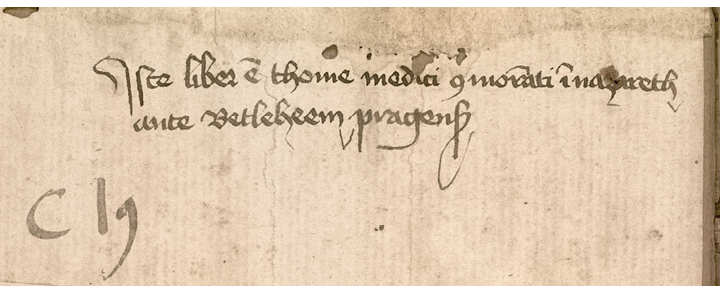 Iste liber ē thome medici ꝯmorāti ī nazareth
ante Betleheem pragenẜ
C lꝯ